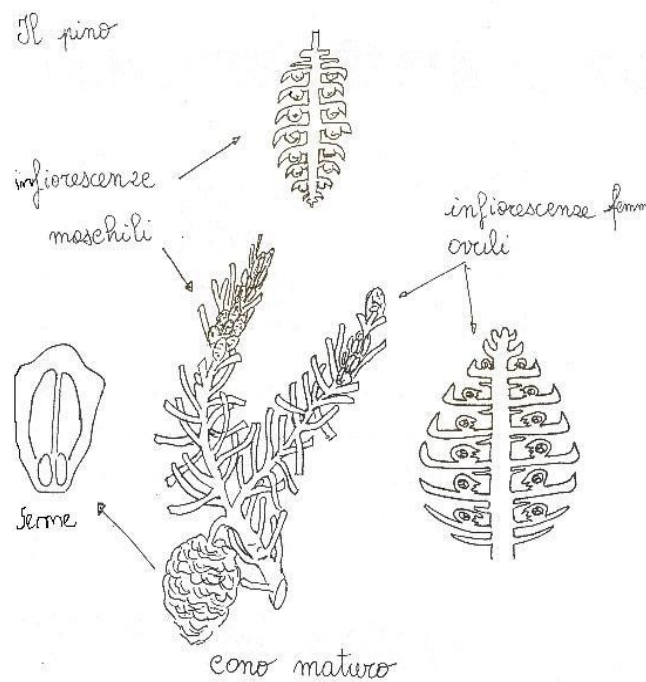 Il pino
infiorescenze
maschili
infiorescenze femm
ovuli
seme
cono maturo